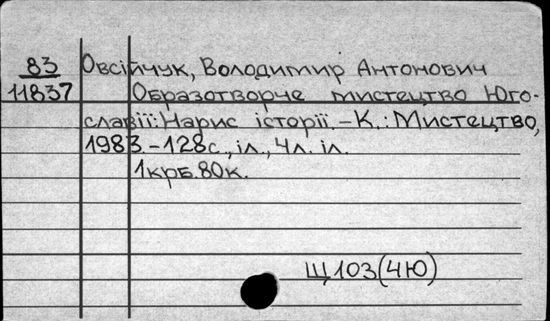 83
11837
Овсійчук, Володимир Антонович
Образотворче мистецтво Юго-
славії: Нарис історії. - К.: Мистецтво,
1983. - 128с., іл., 4л. іл.
1крб. 80к.
Щ103(4Ю)